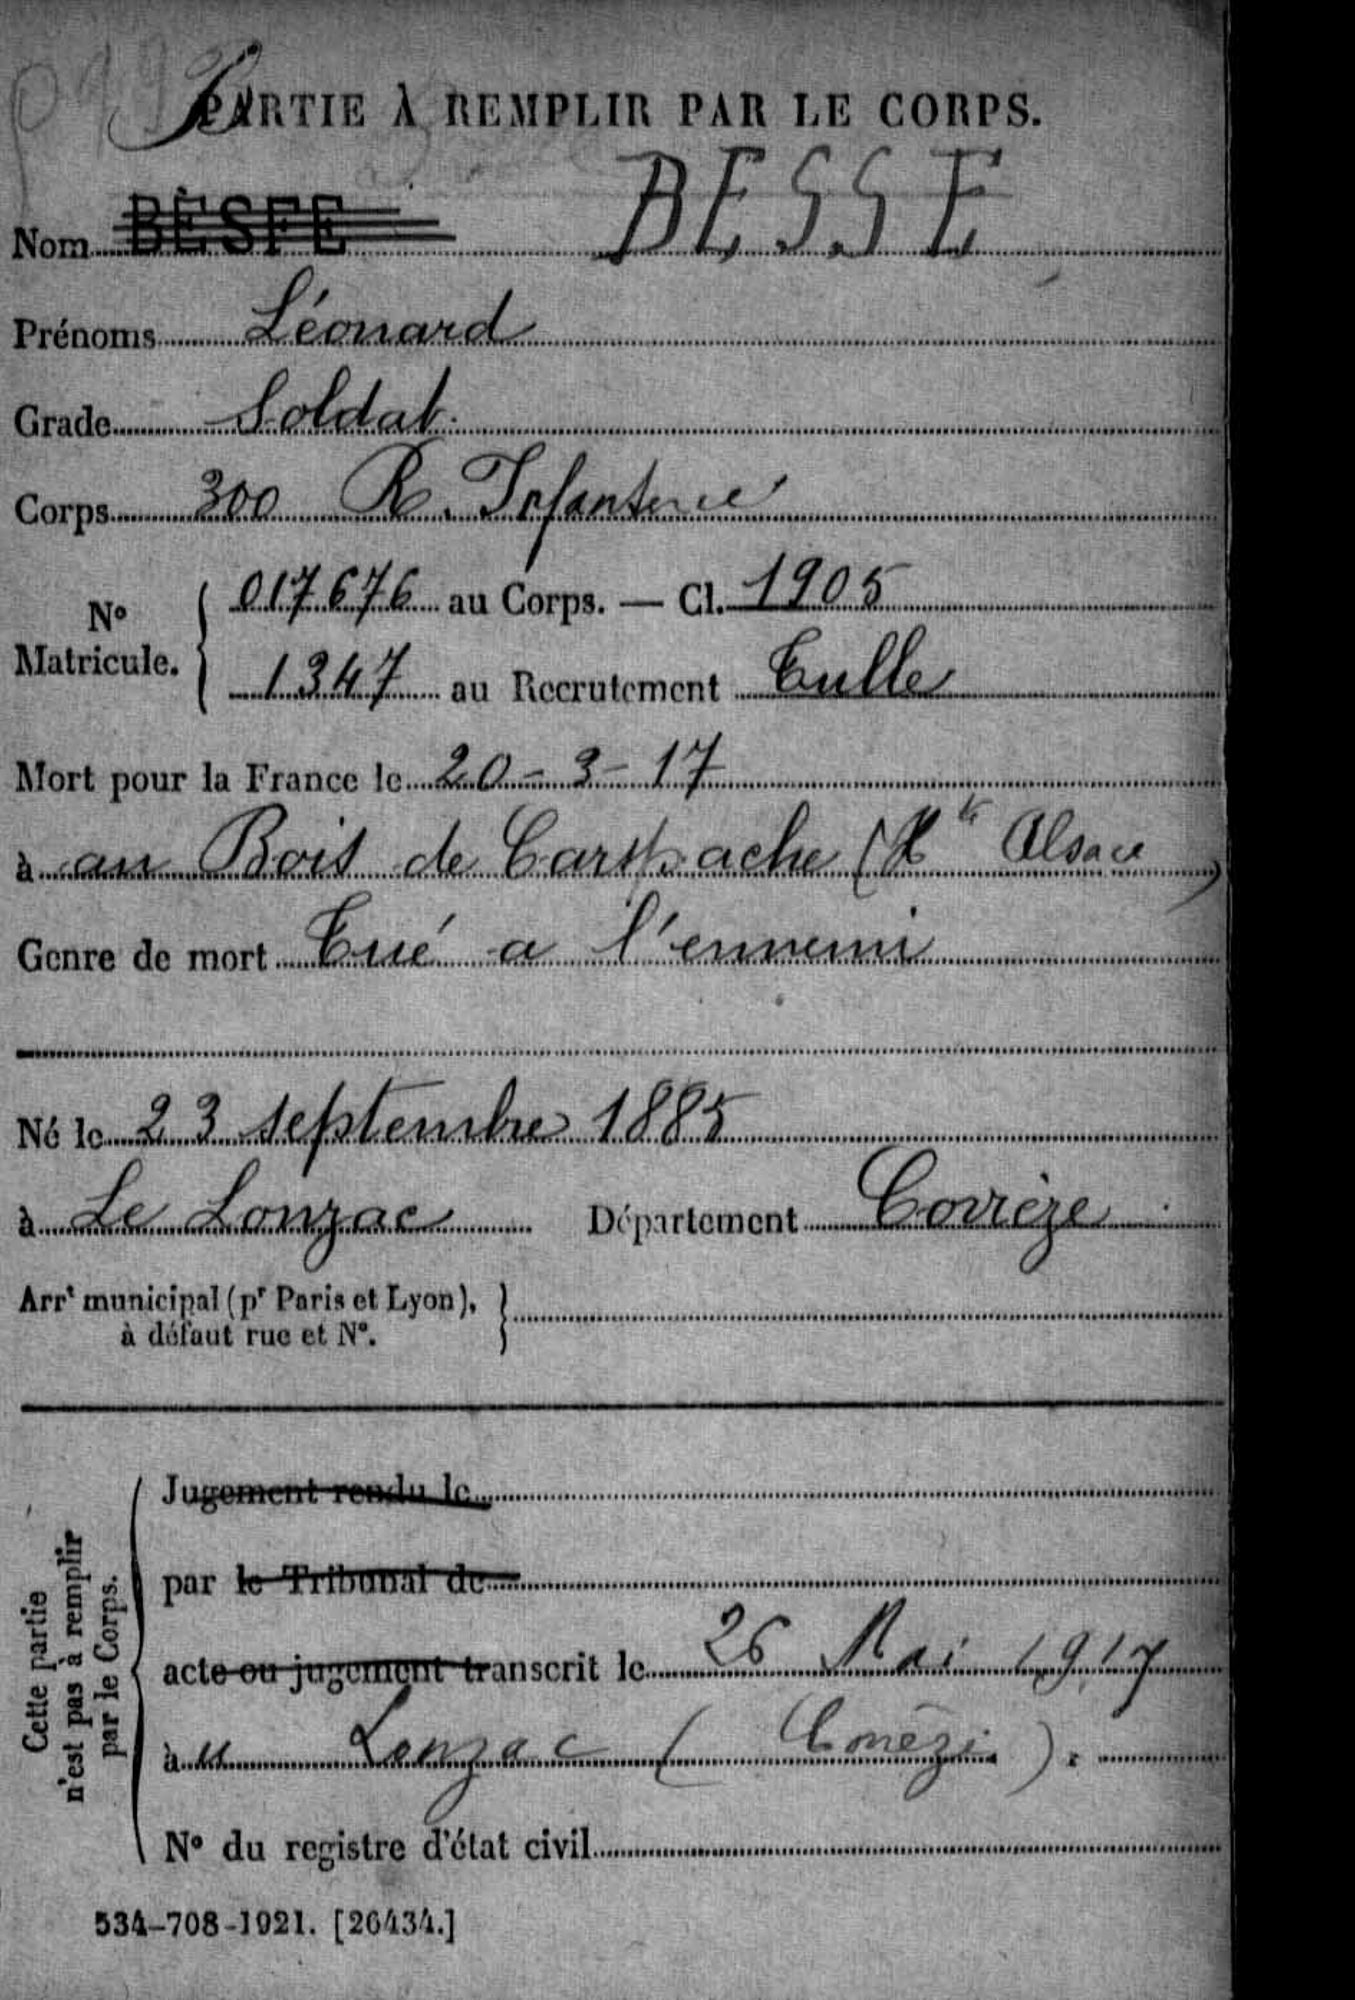 PARTIE À REMPLIR PAR LE CORPS.
Nom BÈSFE BESSE
Prénoms Léonard
Grade Soldat.
Corps 300 R. Infanterie
N° Matricule. 017676 au Corps. — Cl. 1905
1347 au Recrutement Tulle
Mort pour la France le 20-3-17
à au Bois de Carspache (Hte Alsace)
Genre de mort Tué a l'ennemi
Né le 23 septembre 1885
à Le Lonzac Département Corrèze
Arrt municipal (pr Paris et Lyon),
à défaut rue et N°.
Cette partie
n'est pas à remplir
par le Corps.
Jugement rendu le
par le Tribunal de
acte ou jugement transcrit le 26 Mai 1917
à Lonzac (Corrèze).
N° du registre d'état civil
534-708-1921. [26434.]